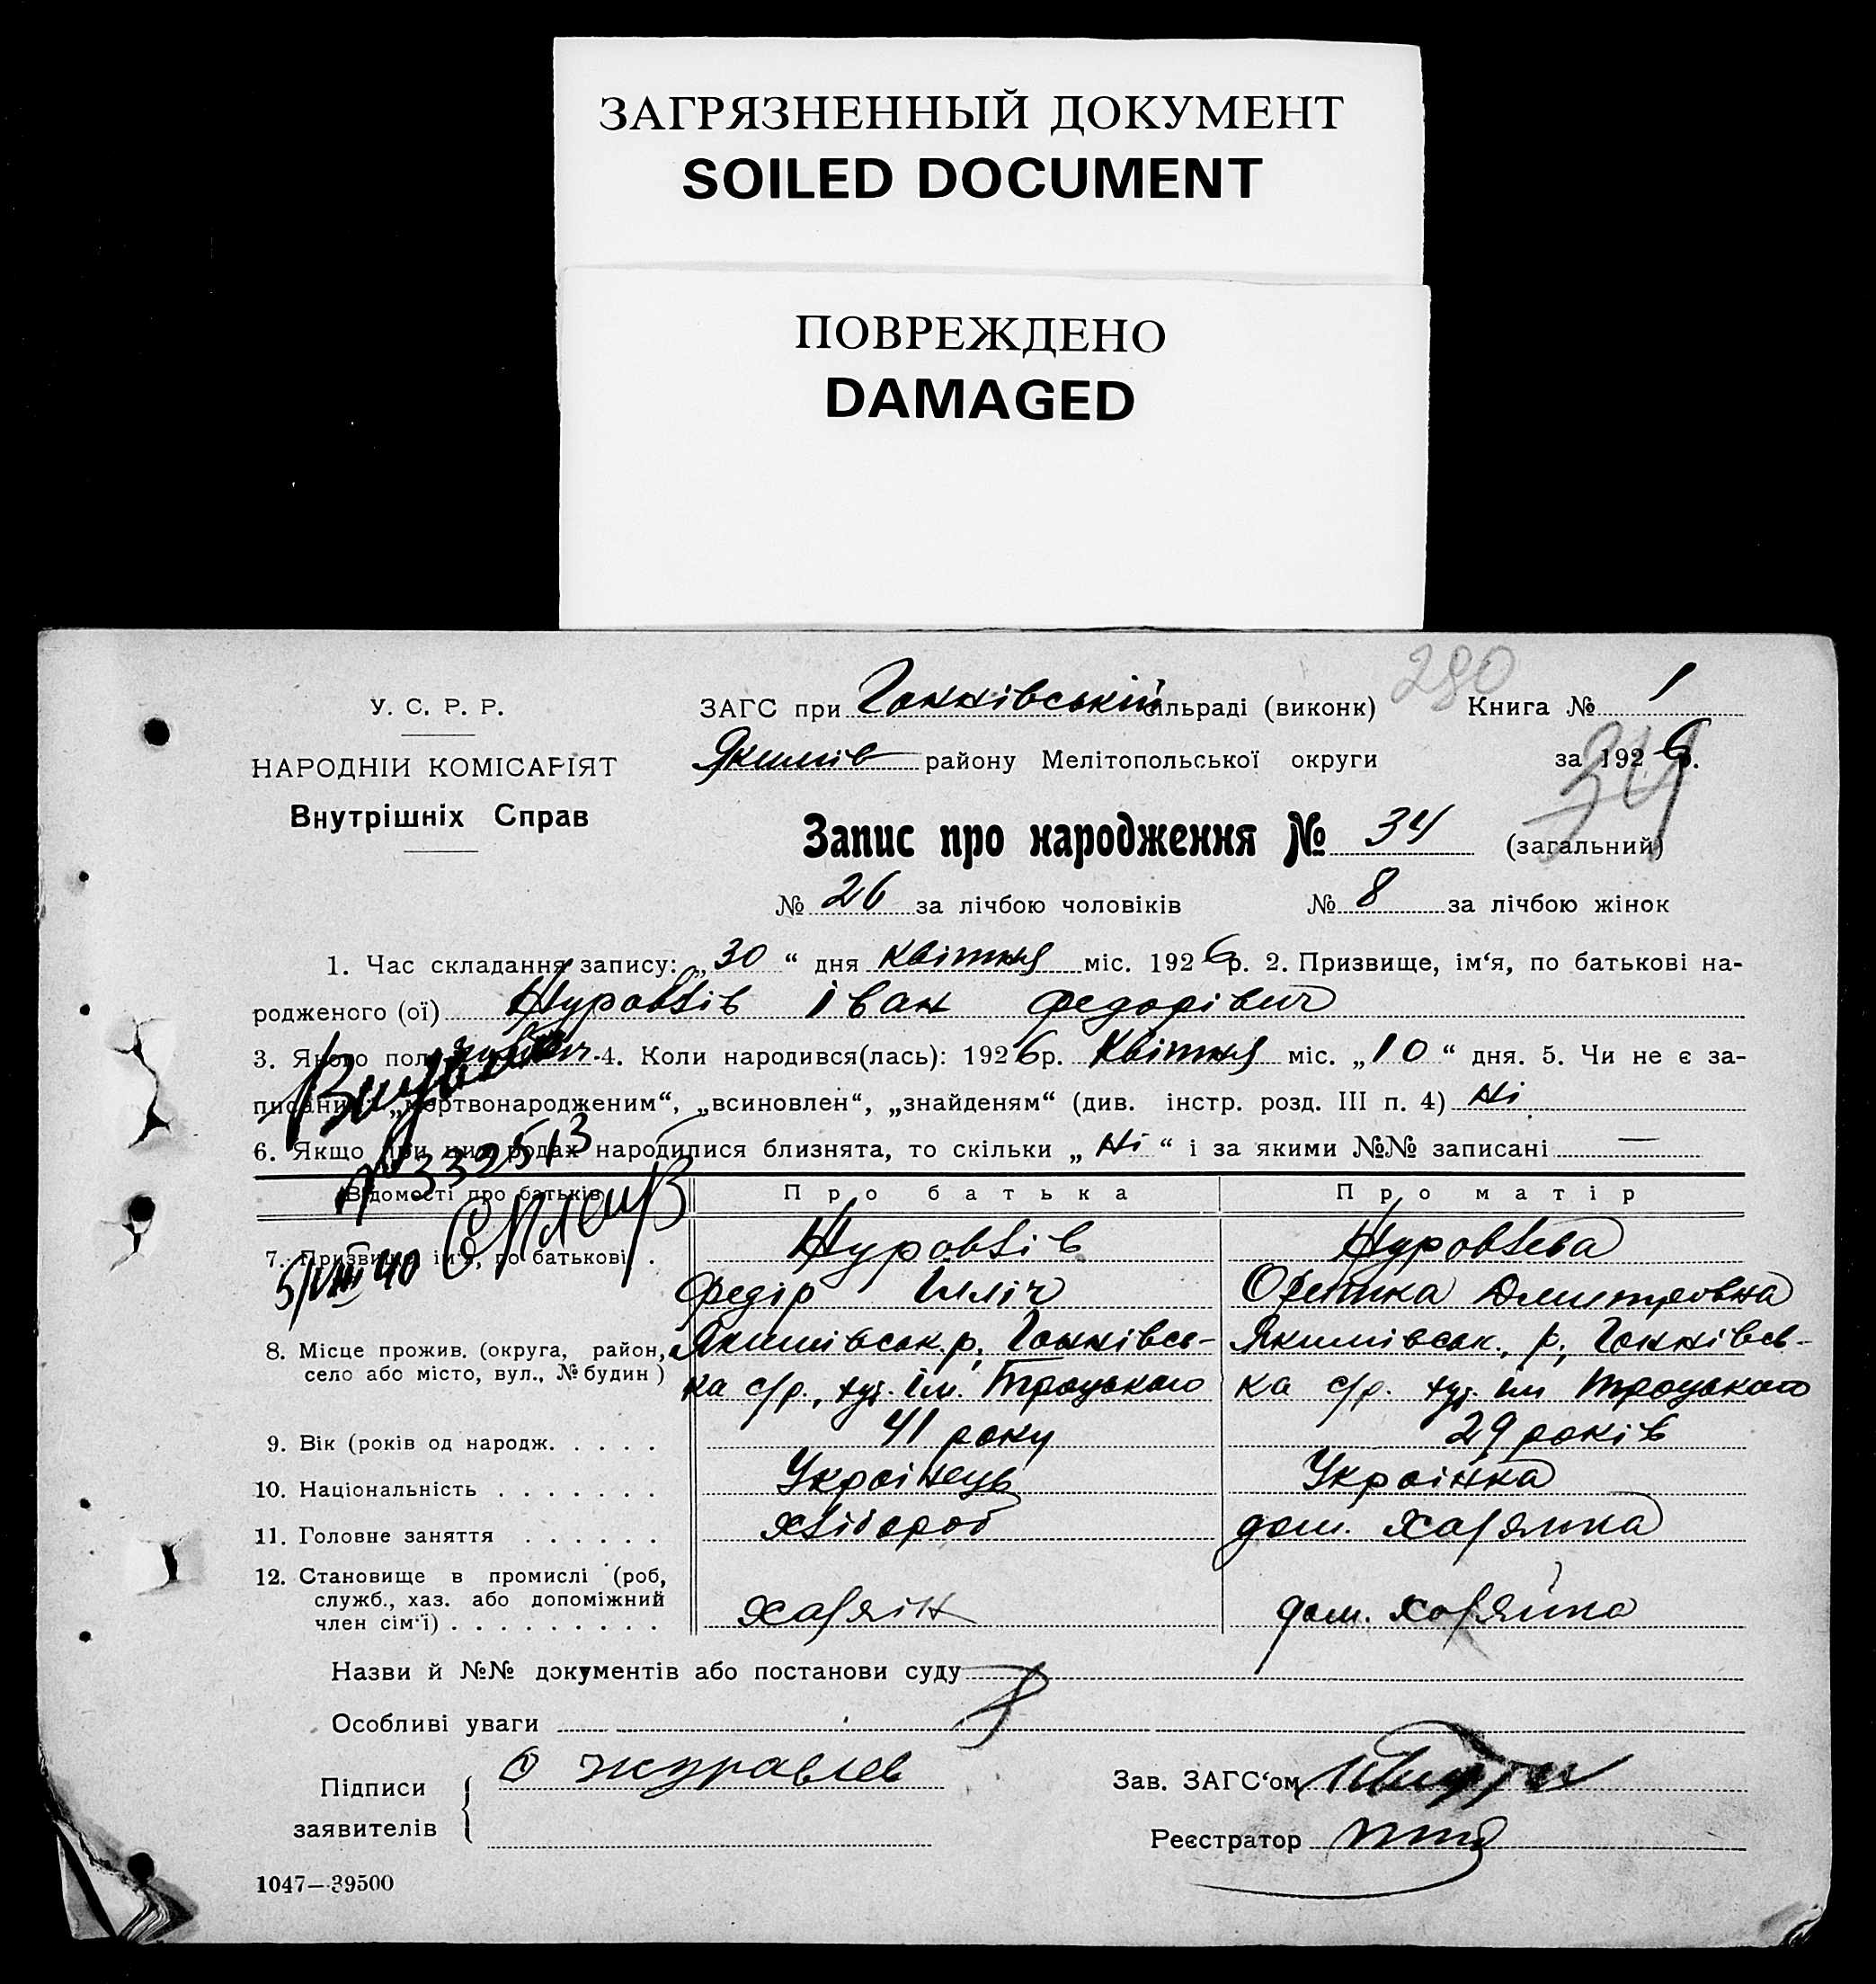 ЗАГРЯЗНЕННЫЙ ДОКУМЕНТ
SOILED DOCUMENT
ПОВРЕЖДЕНО
DAMAGED
280
У. С. Р. Р.
ЗАГС при Ганнівській сільраді (виконк) Книга № 1
НАРОДНІЙ КОМІСАРІЯТ
Якимів району Мелітопольської округи за 1926 р.
Внутрішніх Справ
34
Запис про народження № 34 (загальний)
№ 26 за лічбою чоловіків № 8 за лічбою жінок
1. Час складання запису: „30“ дня квітня міс. 1926 р. 2. Призвище, ім‘я, по батькові на-
родженого (ої) Журавлів Іван Федорівич
3. Якого пол 4. Коли народився(лась): 1926 р. Квітня міс. „10“ дня. 5. Чи не є за-
писаний: „мертвонародженим“, „всиновлен“, „знайденям“ (див. інстр. розд. III п. 4) Ні
6. Якщо при цих родах народилися близнята, то скільки „Ні“ і за якими №№ записані —
№ 332513
Відомості про батьків Про батька Про матір
7. Призвище, ім‘я, по батькові . Журавлів Журавлева
5/VIII 40
Федір Ілліч Дмитровна
8. Місце прожив. (округа, район, село або місто, вул., № будин) Якимівськ. р., Ганнівсь- Якимівськ., р., Ганнівсь-
ка с/р., хут. ім. Троцького ка с/р. хут. ім Троцького
9. Вік (років од народж. . . . . 41 року 29 років
10. Національність . . . . . . . Українець Українка
11. Головне заняття . . . . . . хлібороб дом. хазяйка
12. Становище в промислі (роб,
служб., хаз. або допоміжний
член сім‘ї) . . . . . . . . . хазяін дом. хазяйка
Назви й №№ документів або постанови суду
Особливі уваги
Підписи
заявителів журавлев
Зав. ЗАГС‘ом
Реєстратор
1047—39500